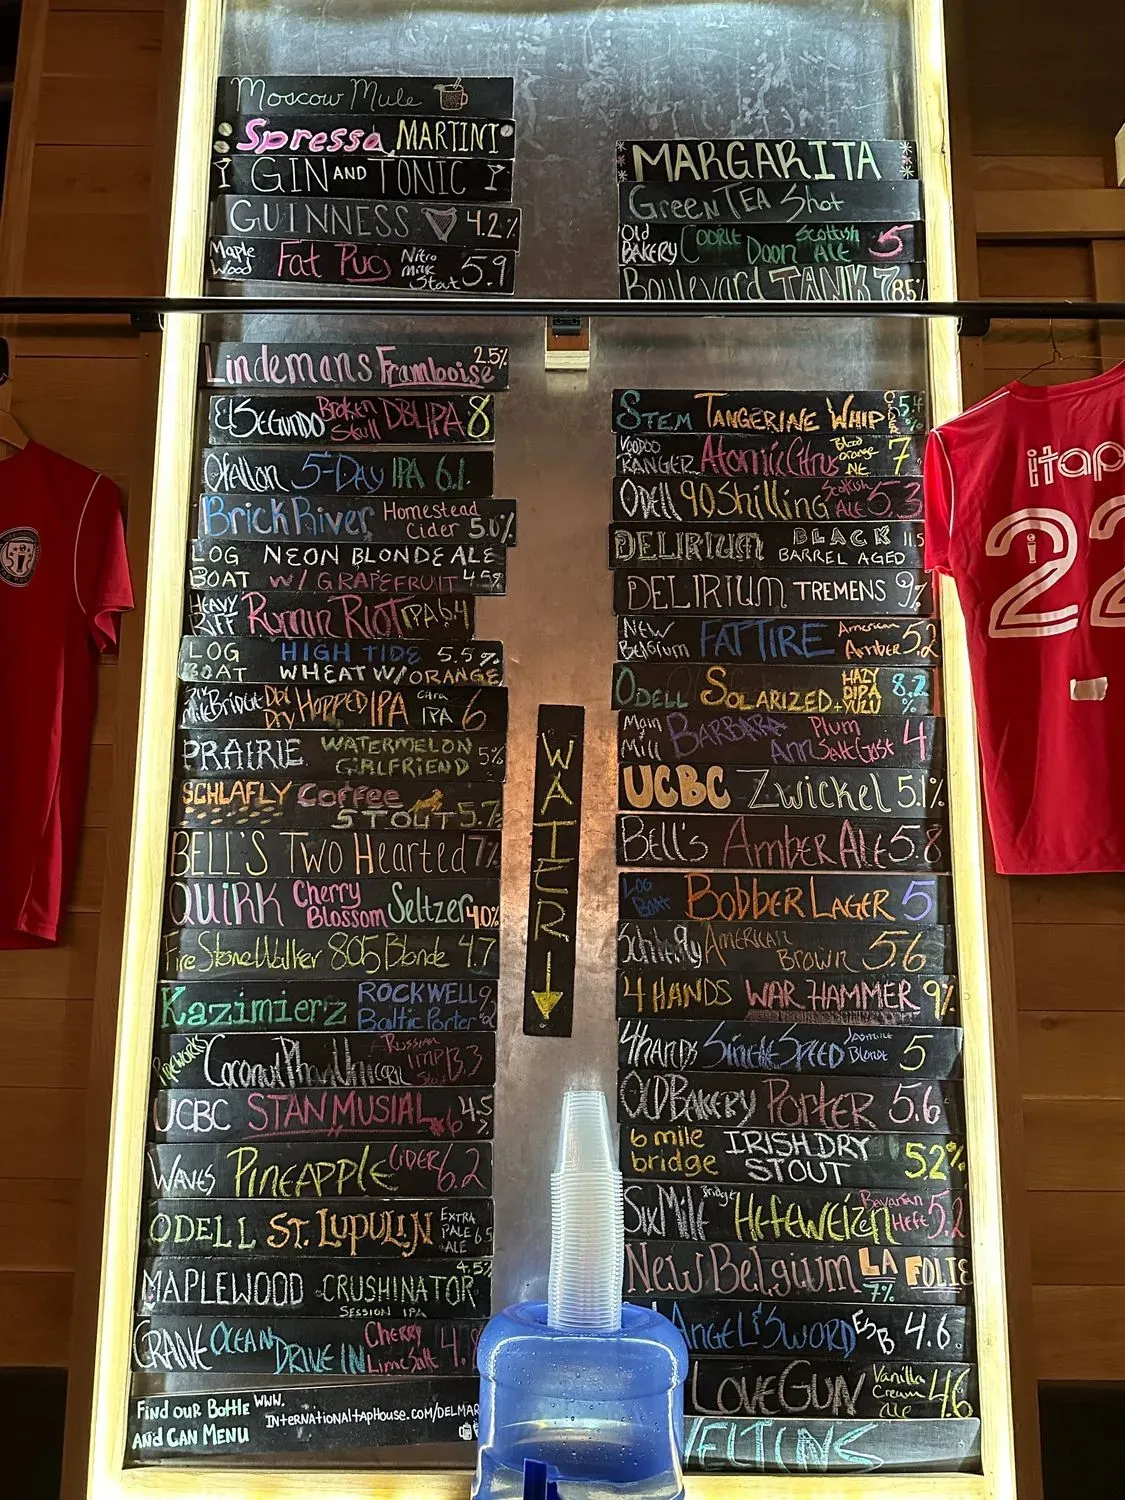 Moscow Mule
Spressa MARTINI
GIN AND TONIC
GUINNESS 4.2%
Maple Wood Fat Pug Nitro Milk Stout 5.9
Lindemans Framboise 2.5%
El Segundo Broken Skull DBL IPA 8
Ofallon 5-Day IPA 6.1
Brick River Homestead Cider 5.0%
LOG BOAT NEON BLONDE ALE W/ GRAPEFRUIT 4.5%
HEAVY RIFF Rumin Riot IPA 6.4
LOG BOAT HIGH TIDE 5.5% WHEAT W/ ORANGE
Mile Bridge Dbl Dry Hopped IPA Citra IPA 6
PRAIRIE WATERMELON GIRLFRIEND 5%
SCHLAFLY Coffee STOUT 5.7
BELL'S Two Hearted 7%
QUIRK Cherry Blossom Seltzer 4.0%
FireStoneWalker 805 Blonde 4.7
Kazimierz ROCKWELL Baltic Porter
Pipeworks Coconut Unicorn Russian IMP
UCBC STAN MUSIAL #6 4.5%
WAVES PINEAPPLE CIDER 6.2
ODELL ST. LUPULIN EXTRA PALE ALE 6.5
MAPLEWOOD CRUSHINATOR SESSION IPA 4.5%
CRANE OCEAN DRIVE IN Cherry Lime Salt 4.8
Find our Bottle and Can Menu www.InternationalTapHouse.com/DELMAR
WATER
MARGARITA
Green TEA Shot
Old BAKERY COOKIE Door Scottish ALE 5
Boulevard TANK 7 8.5
STEM TANGERINE WHIP CIDER 5.4%
VOODOO RANGER Atomic Citrus Blood Orange NE 7
Odell 90 Shilling Scottish ALE 5.3
DELIRIUM BLACK BARREL AGED 11.5
DELIRIUM TREMENS 9%
New Belgium FAT TIRE American Amber 5.2
ODELL SOLARIZED HAZY DIPA + YUZU 8.2%
Main Mill BARBARA Ann Plum Salt Gose 4
UCBC Zwickel 5.1%
Bell's Amber Ale 5.8
LOG BOAT BOBBER LAGER 5
Schlafly AMERICAN BROWN 5.6
4 HANDS WAR HAMMER 9%
4hands Single Speed Jasmine Blonde 5
Old Bakery Porter 5.6
6 mile bridge IRISH DRY STOUT 5.2%
Six Mile Bridge Hefeweizen Bavarian Hefe 5.2
New Belgium LA FOLIE 7%
ANGEL & SWORD ESB 4.6
LOVE GUN Vanilla Cream Ale 4.6
VELTINS
itap
22